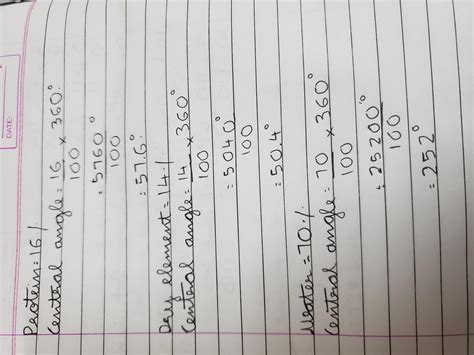 DATE:
Protein = 16%
Central angle = 16/100 × 360°
= 5760°/100
= 57.6°
Dry element = 14%
Central angle = 14/100 × 360°
= 5040°/100
= 50.4°
Water = 70%
Central angle = 70/100 × 360°
= 25200°/100
= 252°